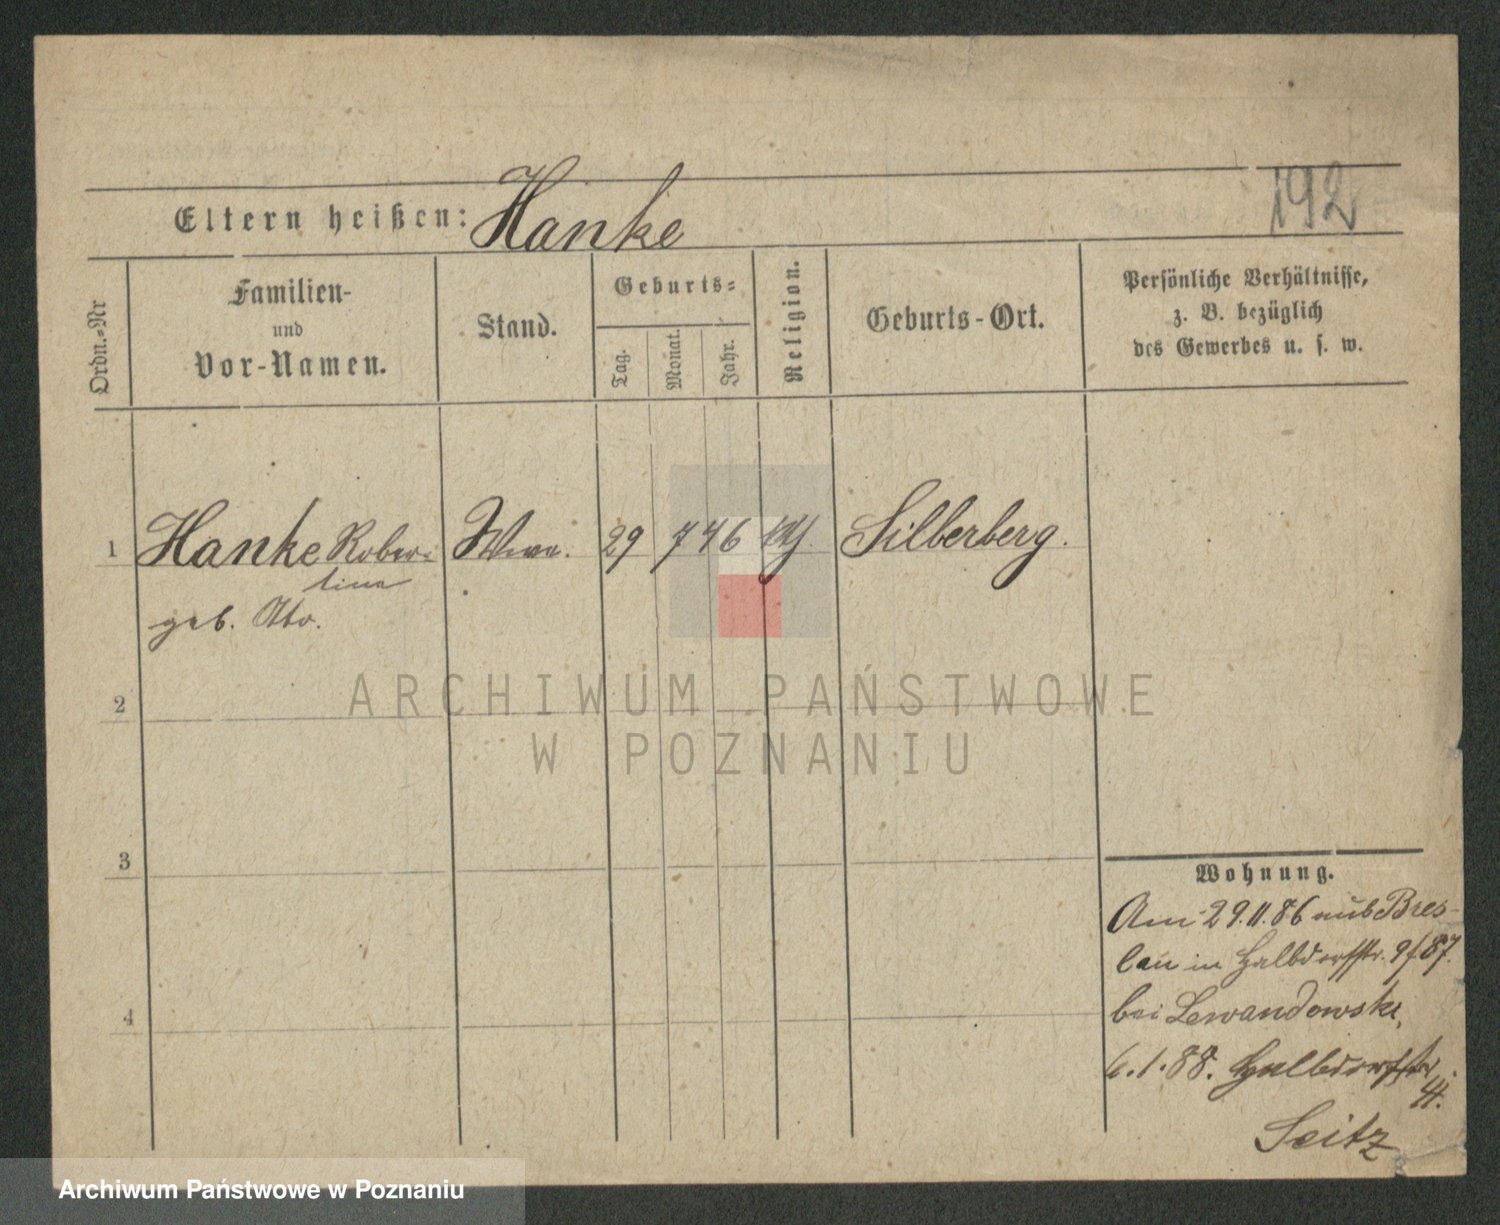 192
Eltern heißen: Hanke
Ordn.-Nr
Familien-
und
Vor-Namen.
Stand.
Geburts-
Tag.
Monat.
Jahr.
Religion.
Geburts-Ort.
Persönliche Verhältnisse,
z. B. bezüglich
des Gewerbes u. s. w.
1 Hanke Rober- 29 7 46 Silberberg.
tine
geb.
2
3
4
Wohnung.
Am 29.11.86 aus Bres-
lau in Halbdorfstr. 9/87.
bei Lewandowski,
6.1.88. Halbdorfstr
Seitz
ARCHIWUM PAŃSTWOWE
W POZNANIU
Archiwum Państwowe w Poznaniu